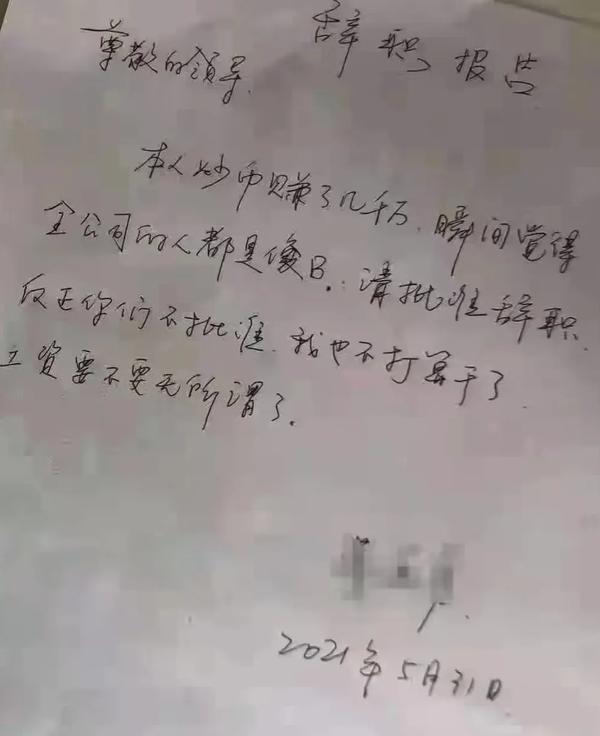 辞职报告
尊敬的领导.
本人炒币赚了几千万,瞬间觉得
全公司的人都是傻B.:请批准辞职.
反正你们不批准.我也不打算干了.
工资要不要无所谓了.
2021年5月31日